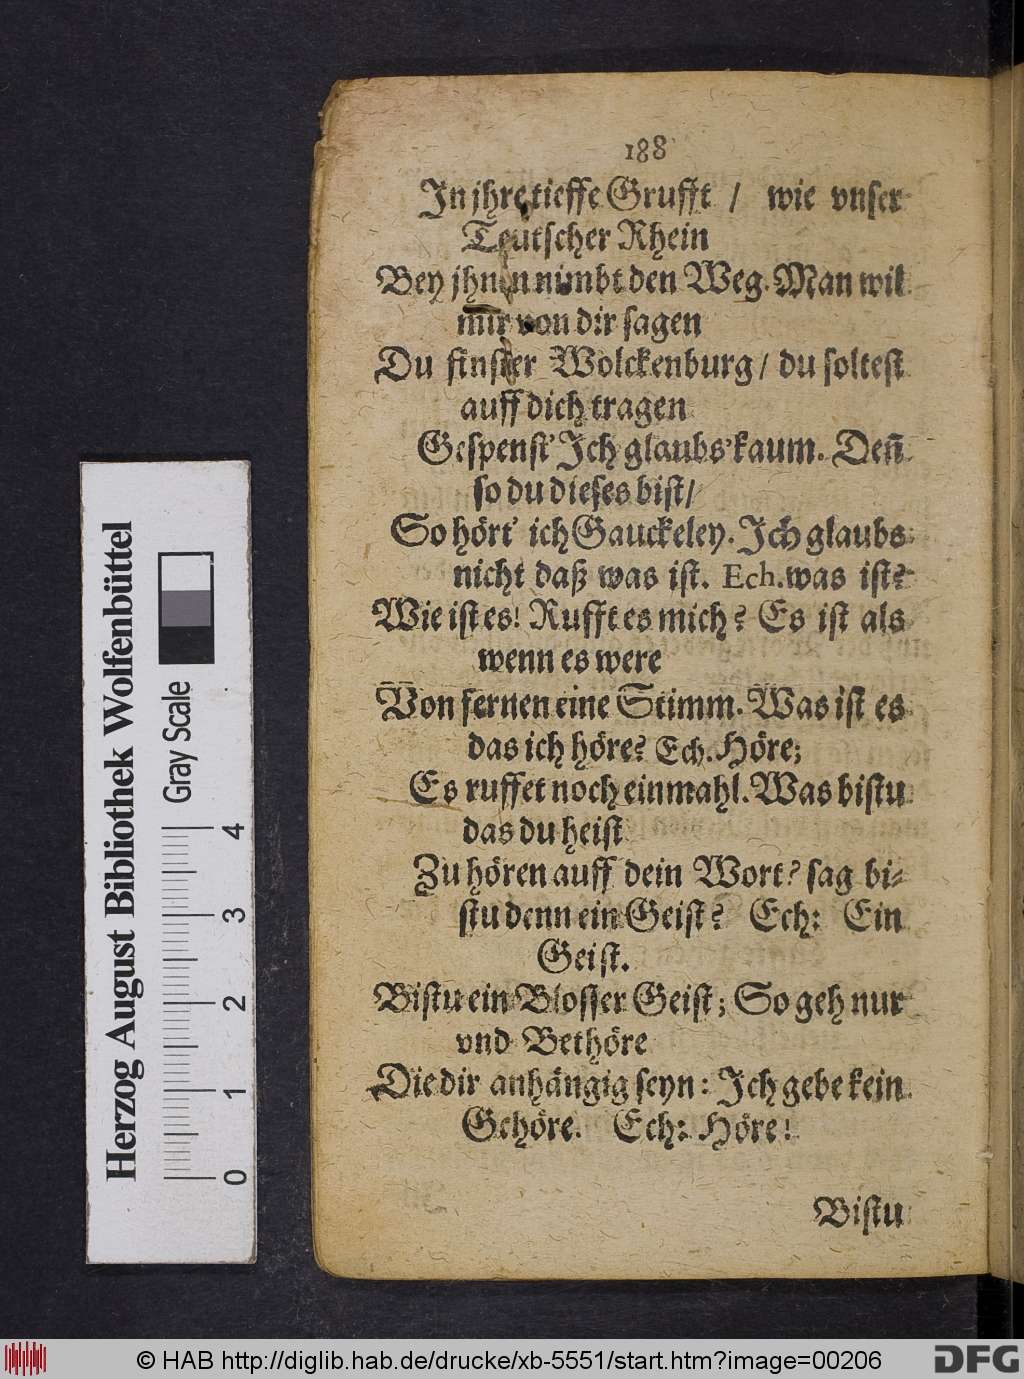 188
In jhre tieffe Grufft / wie vnser
Teutscher Rhein
Bey jhnen nimbt den Weg. Man wil
mir von dir sagen
Du finster Wolckenburg / du soltest
auff dich tragen
Gespenst' Ich glaubs' kaum. Deñ
so du dieses bist /
So hört' ich Gauckeley. Ich glaubs
nicht daß was ist. Ech. was ist?
Wie ist es! Rufft es mich? Es ist als
wenn es were
Von fernen eine Stimm. Was ist es
das ich höre? Ech. Höre;
Es ruffet noch einmahl. Was bistu
das du heist
Zu hören auff dein Wort? sag bi-
stu denn ein Geist? Ech: Ein
Geist.
Bistu ein Blosser Geist; So geh nur
vnd Bethöre
Die dir anhängig seyn: Ich gebe kein
Gehöre. Ech: Höre!
Bistu
Herzog August Bibliothek Wolfenbüttel
Gray Scale
0 1 2 3 4
© HAB http://diglib.hab.de/drucke/xb-5551/start.htm?image=00206
DFG